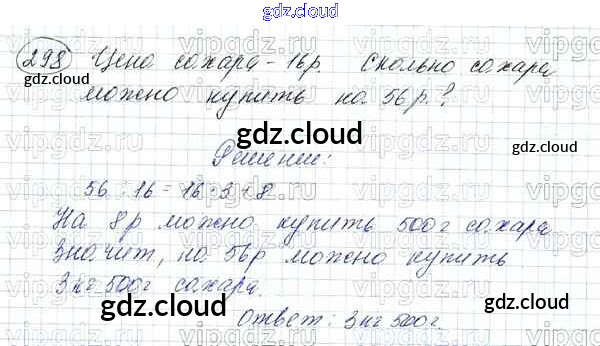 gdz.cloud
298 Цена сахара - 16р. Сколько сахара
gdz.cloud
можно купить на 56р.?
gdz.cloud
Решение:
56 : 16 = 16 · 3 + 8
На 8р можно купить 500г сахара
Значит, на 56р можно купить
3кг 500г сахара.
gdz.cloud
gdz.cloud
Ответ: 3кг 500г.
gdz.cloud